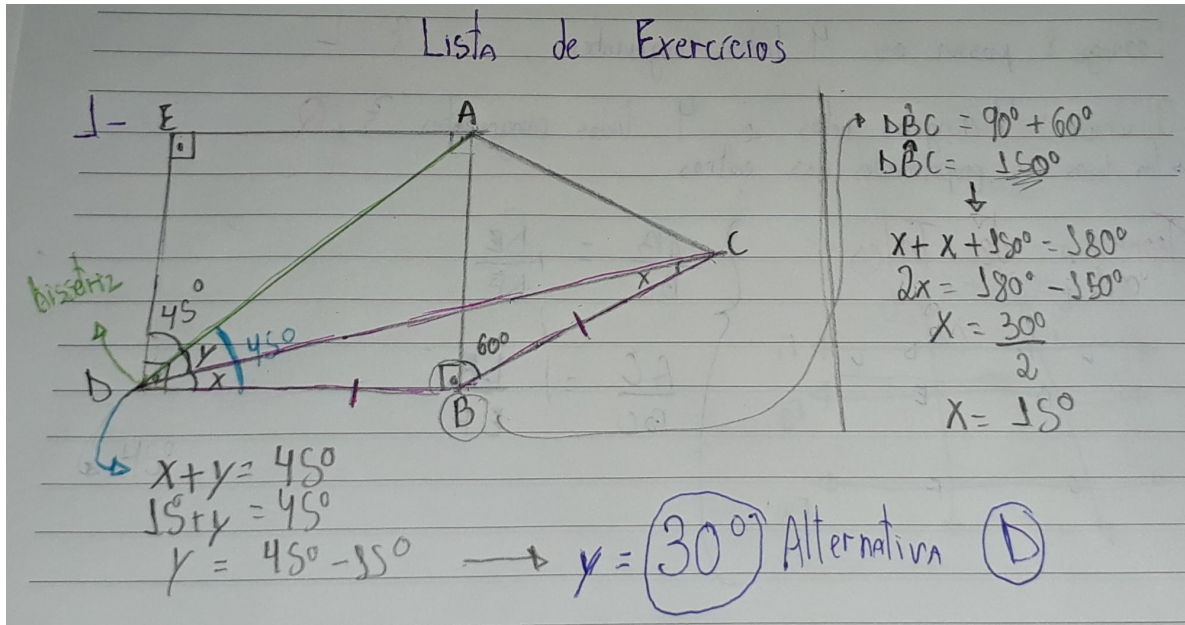 Lista de Exercícios
1- E A
C
bissetriz
45°
y 45°
x
x
60°
D
B
DB̂C = 90° + 60°
DB̂C = 150°
x + x + 150° = 180°
2x = 180° - 150°
x = 30°
2
x = 15°
x + y = 45°
15° + y = 45°
y = 45° - 15° → y = 30° Alternativa D